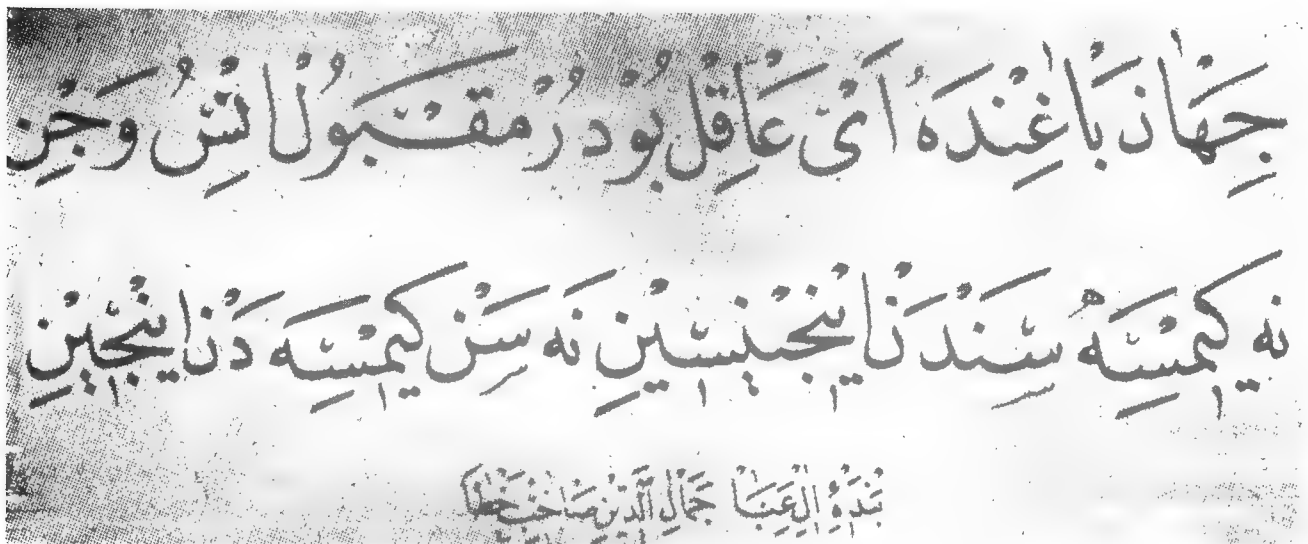 جِهَانْ بَاغِنْدَهْ اَىْ عَاقِلْ بُودُرْ مَقْبُولُ اِنْسُ وَجِنْ
نَه كِيمْسَه سَنْدَنْ اِينْجِينْسِينْ نَه سَنْ كِيمْسَه دَنْ اِينْجِينْ
بَنْدَهِٔ اٰلِ عَبَا جَمَالُ الدِّينْ صَاحِبْ خَطَا